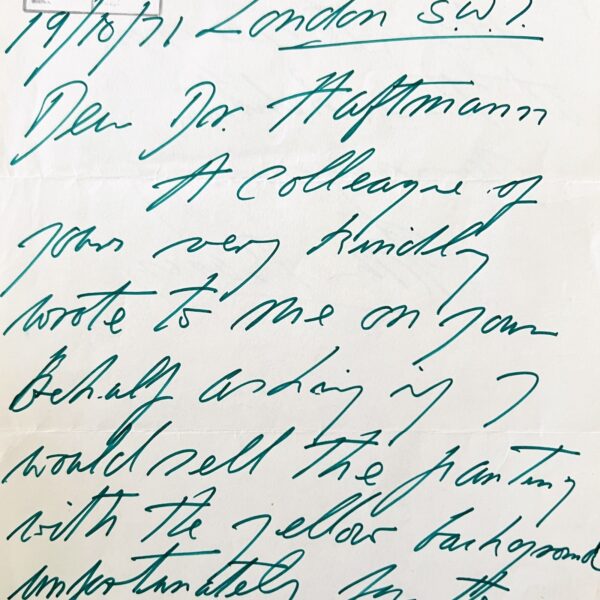 19/10/71 London S.W.7.
Dear Dr. Haftmann
A colleague of
yours very kindly
wrote to me on your
Behalf asking if I
would sell the painting
with the yellow background
unfortunately for the